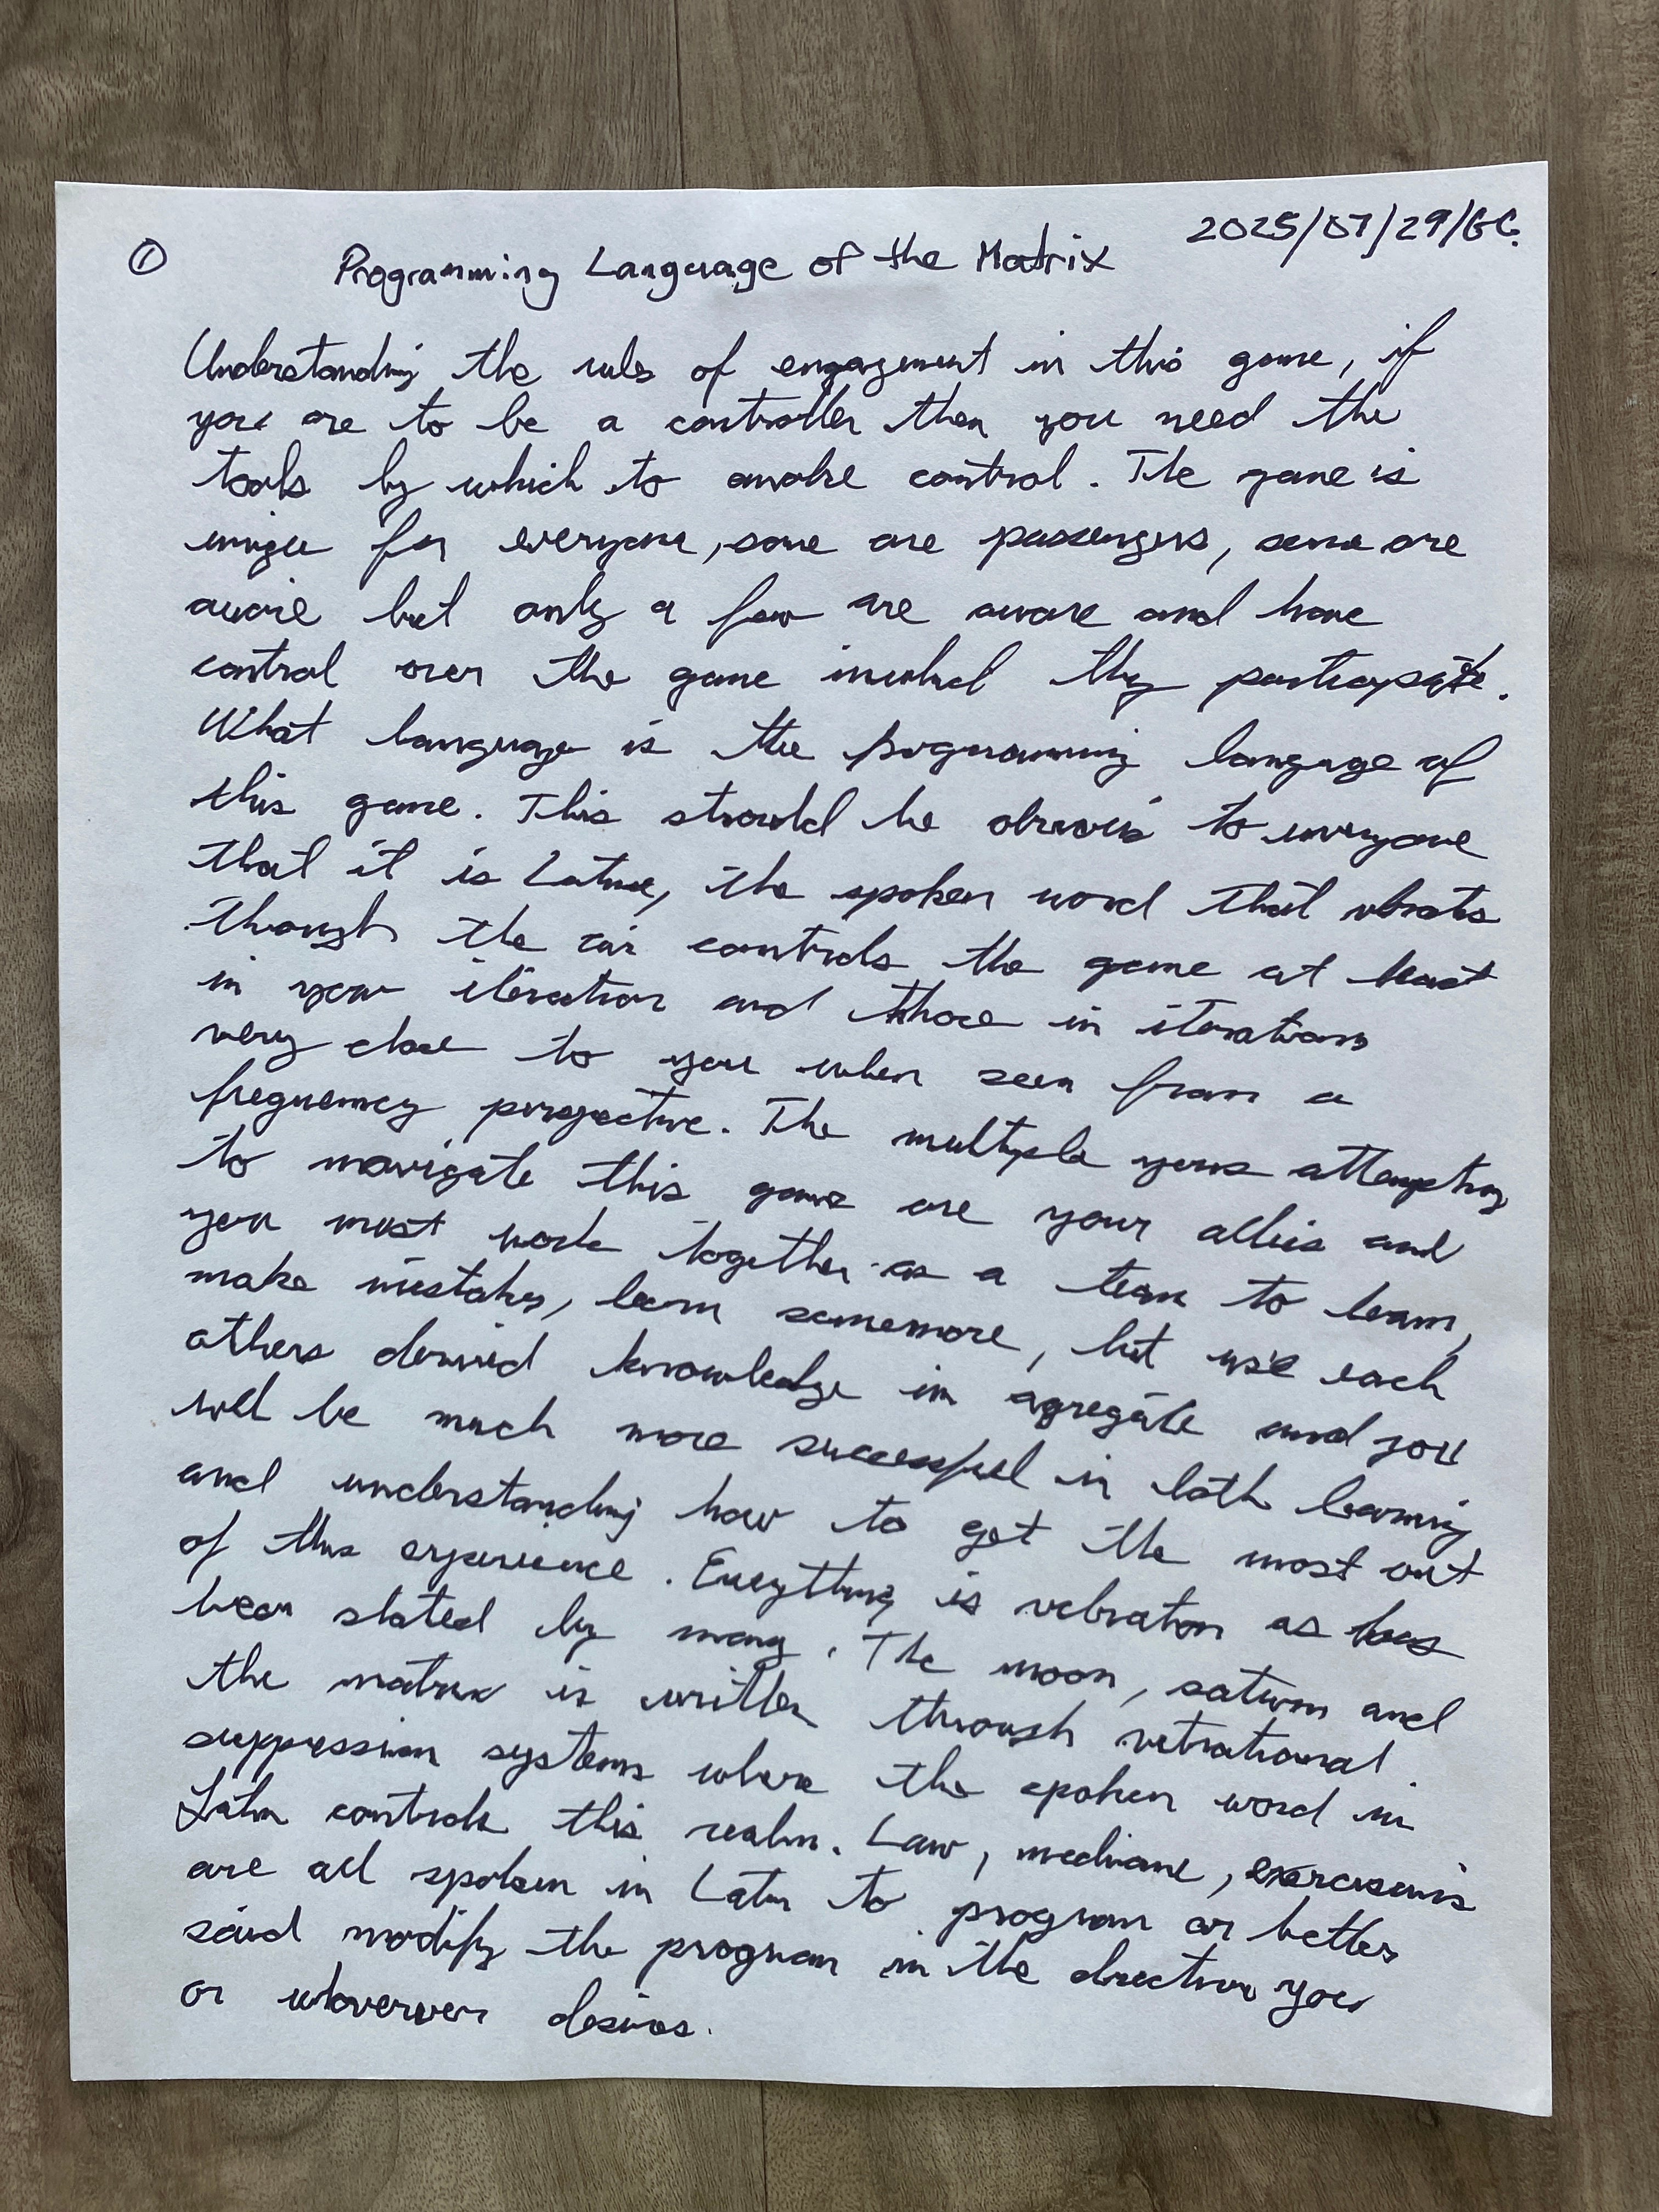 ①
Programming Language of the Matrix
2025/07/29/GC.
Understanding the rules of engagement in this game, if
you are to be a controller then you need the
tools by which to control. The game is
unique for everyone, some are passengers, some are
aware but only a few are aware and have
control over the game they participate.
What language is the programming language of
this game. This should be obvious to everyone
that it is Latin, the spoken word that vibrates
through the air controls the game at least
in your iteration and those in iterations
very close to you when seen from a
frequency perspective. The multiple yous attempting
to navigate this game are your allies and
you must work together as a team to learn,
make mistakes, learn somemore, but use each
others derived knowledge in agregate and you
will be much more successful in both learning
and understanding how to get the most out
of this experience. Everything is vibration as has
been stated by many. The moon, saturn and
the matrix is written through vibrational
suppression systems where the spoken word in
Latin controls this realm. Law, medicine, exorcisms
are all spoken in Latin to program or better
said modify the program in the direction you
or whoverver desires.